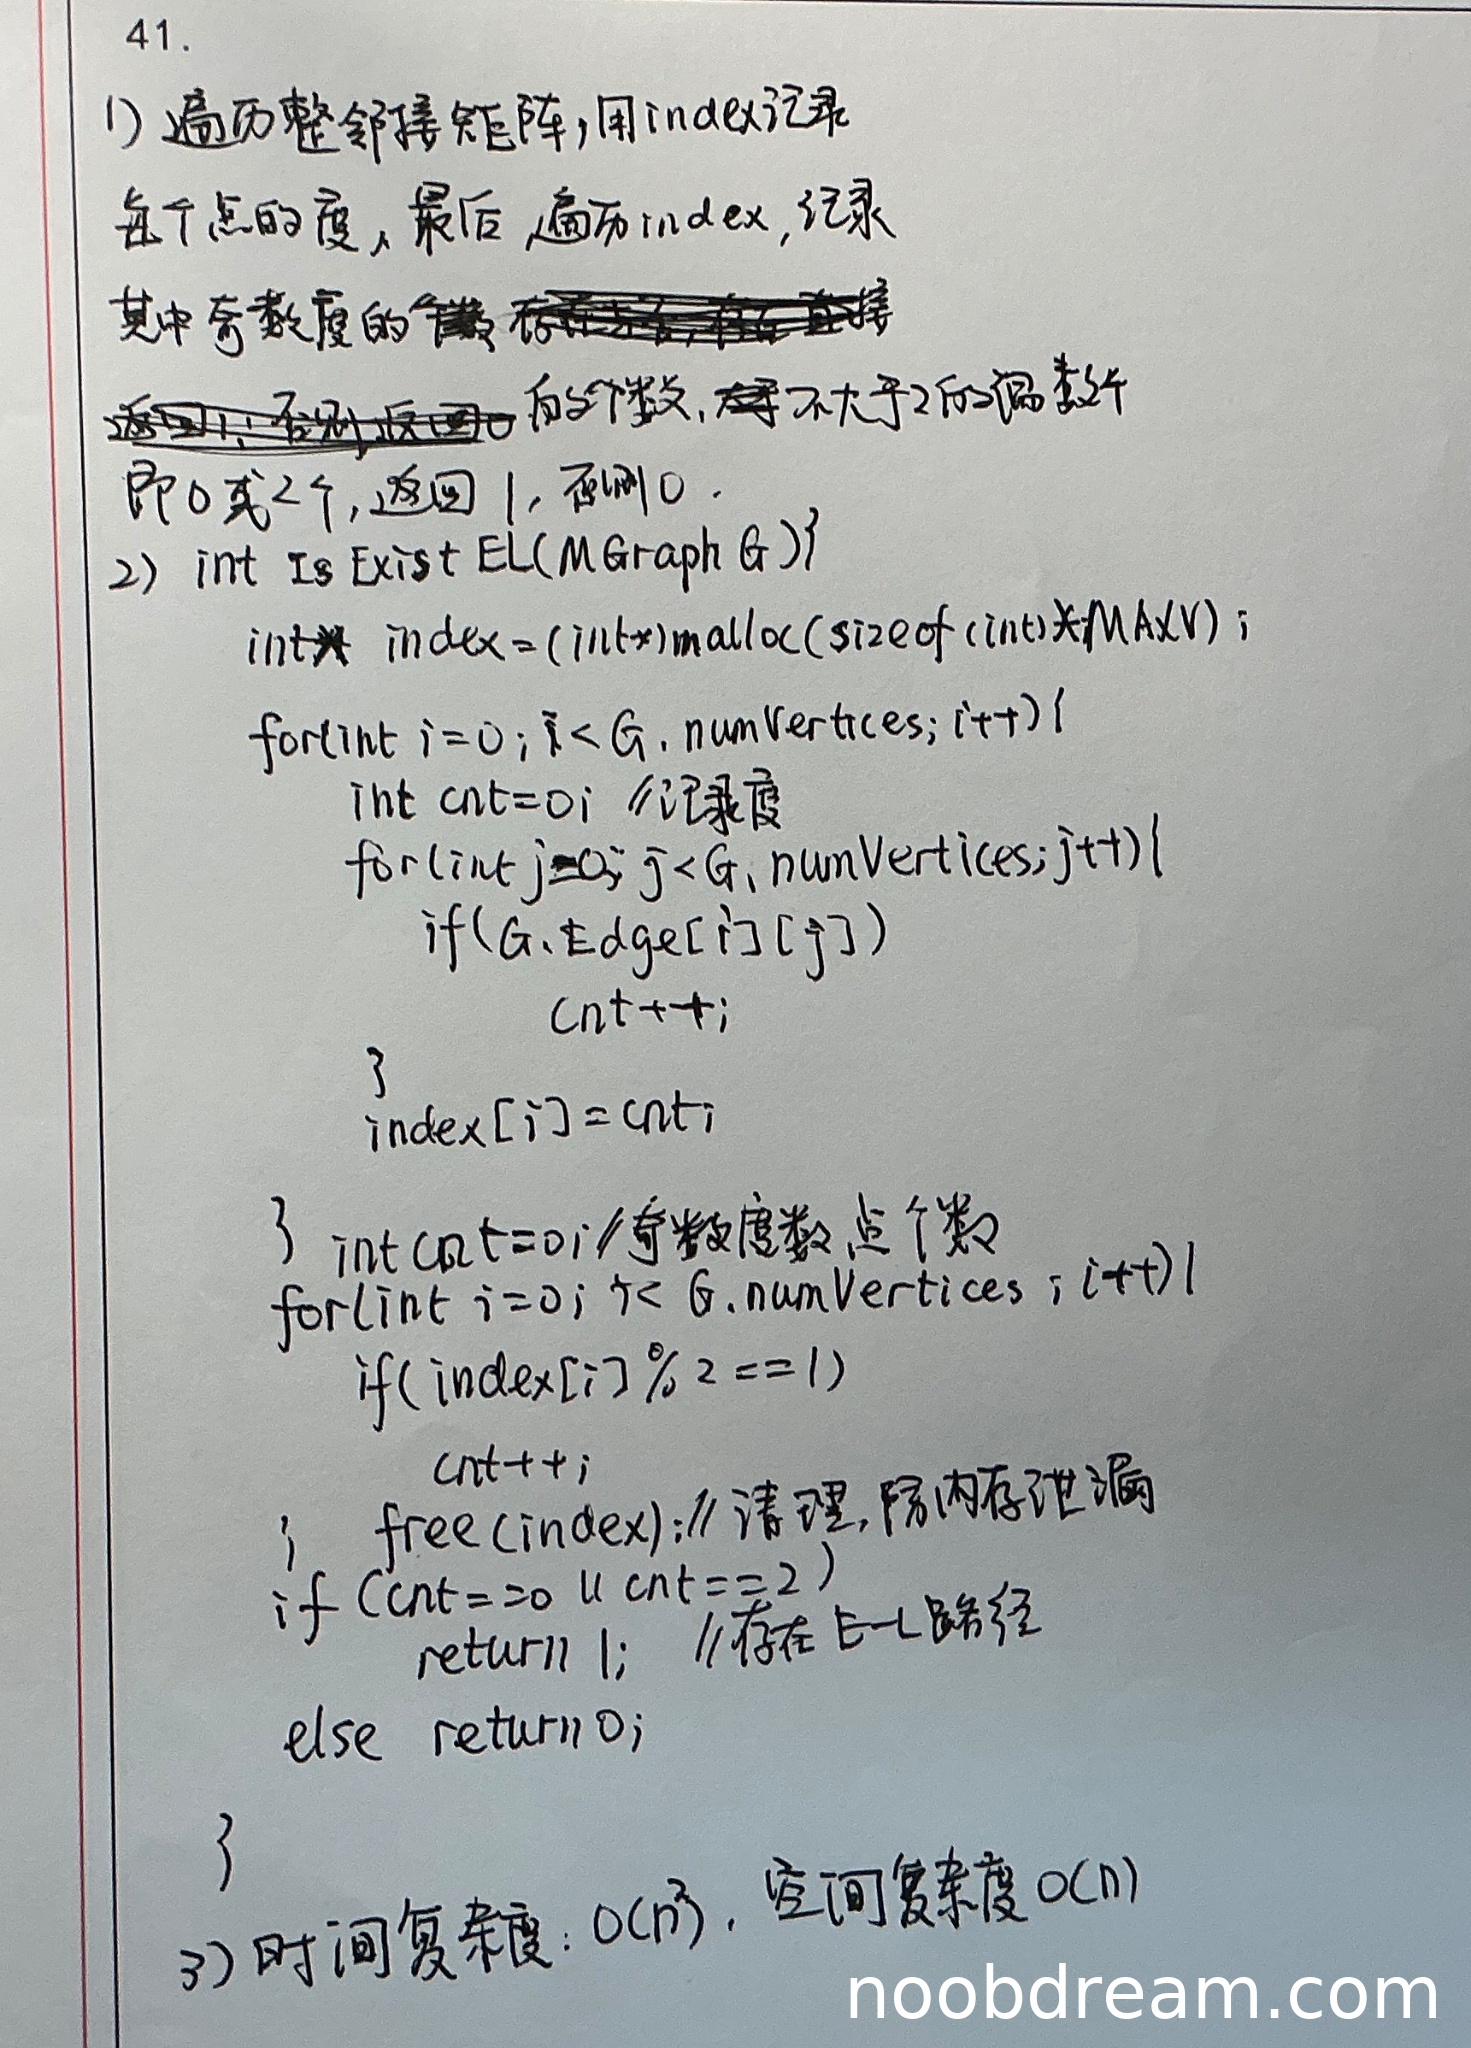 41.
1) 遍历整邻接矩阵,用index记录
每个点的度,最后遍历index,记录
其中奇数度的
的个数, 不大于2的偶数个
即0或2个,返回1,否则0.
2) int IsExistEL(MGraph G){
int* index=(int*)malloc(sizeof(int)*MAXV);
for(int i=0;i<G.numVertices;i++){
int cnt=0; //记录度
for(int j=0;j<G.numVertices;j++){
if(G.Edge[i][j])
cnt++;
}
index[i]=cnt;
} int cnt=0;//奇数度数点个数
for(int i=0;i<G.numVertices;i++){
if(index[i]%2==1)
cnt++;
} free(index);//清理,防内存泄漏
if(cnt==0||cnt==2)
return 1; //存在E-L路径
else return 0;
}
3)时间复杂度:O(n²),空间复杂度O(n)
noobdream.com